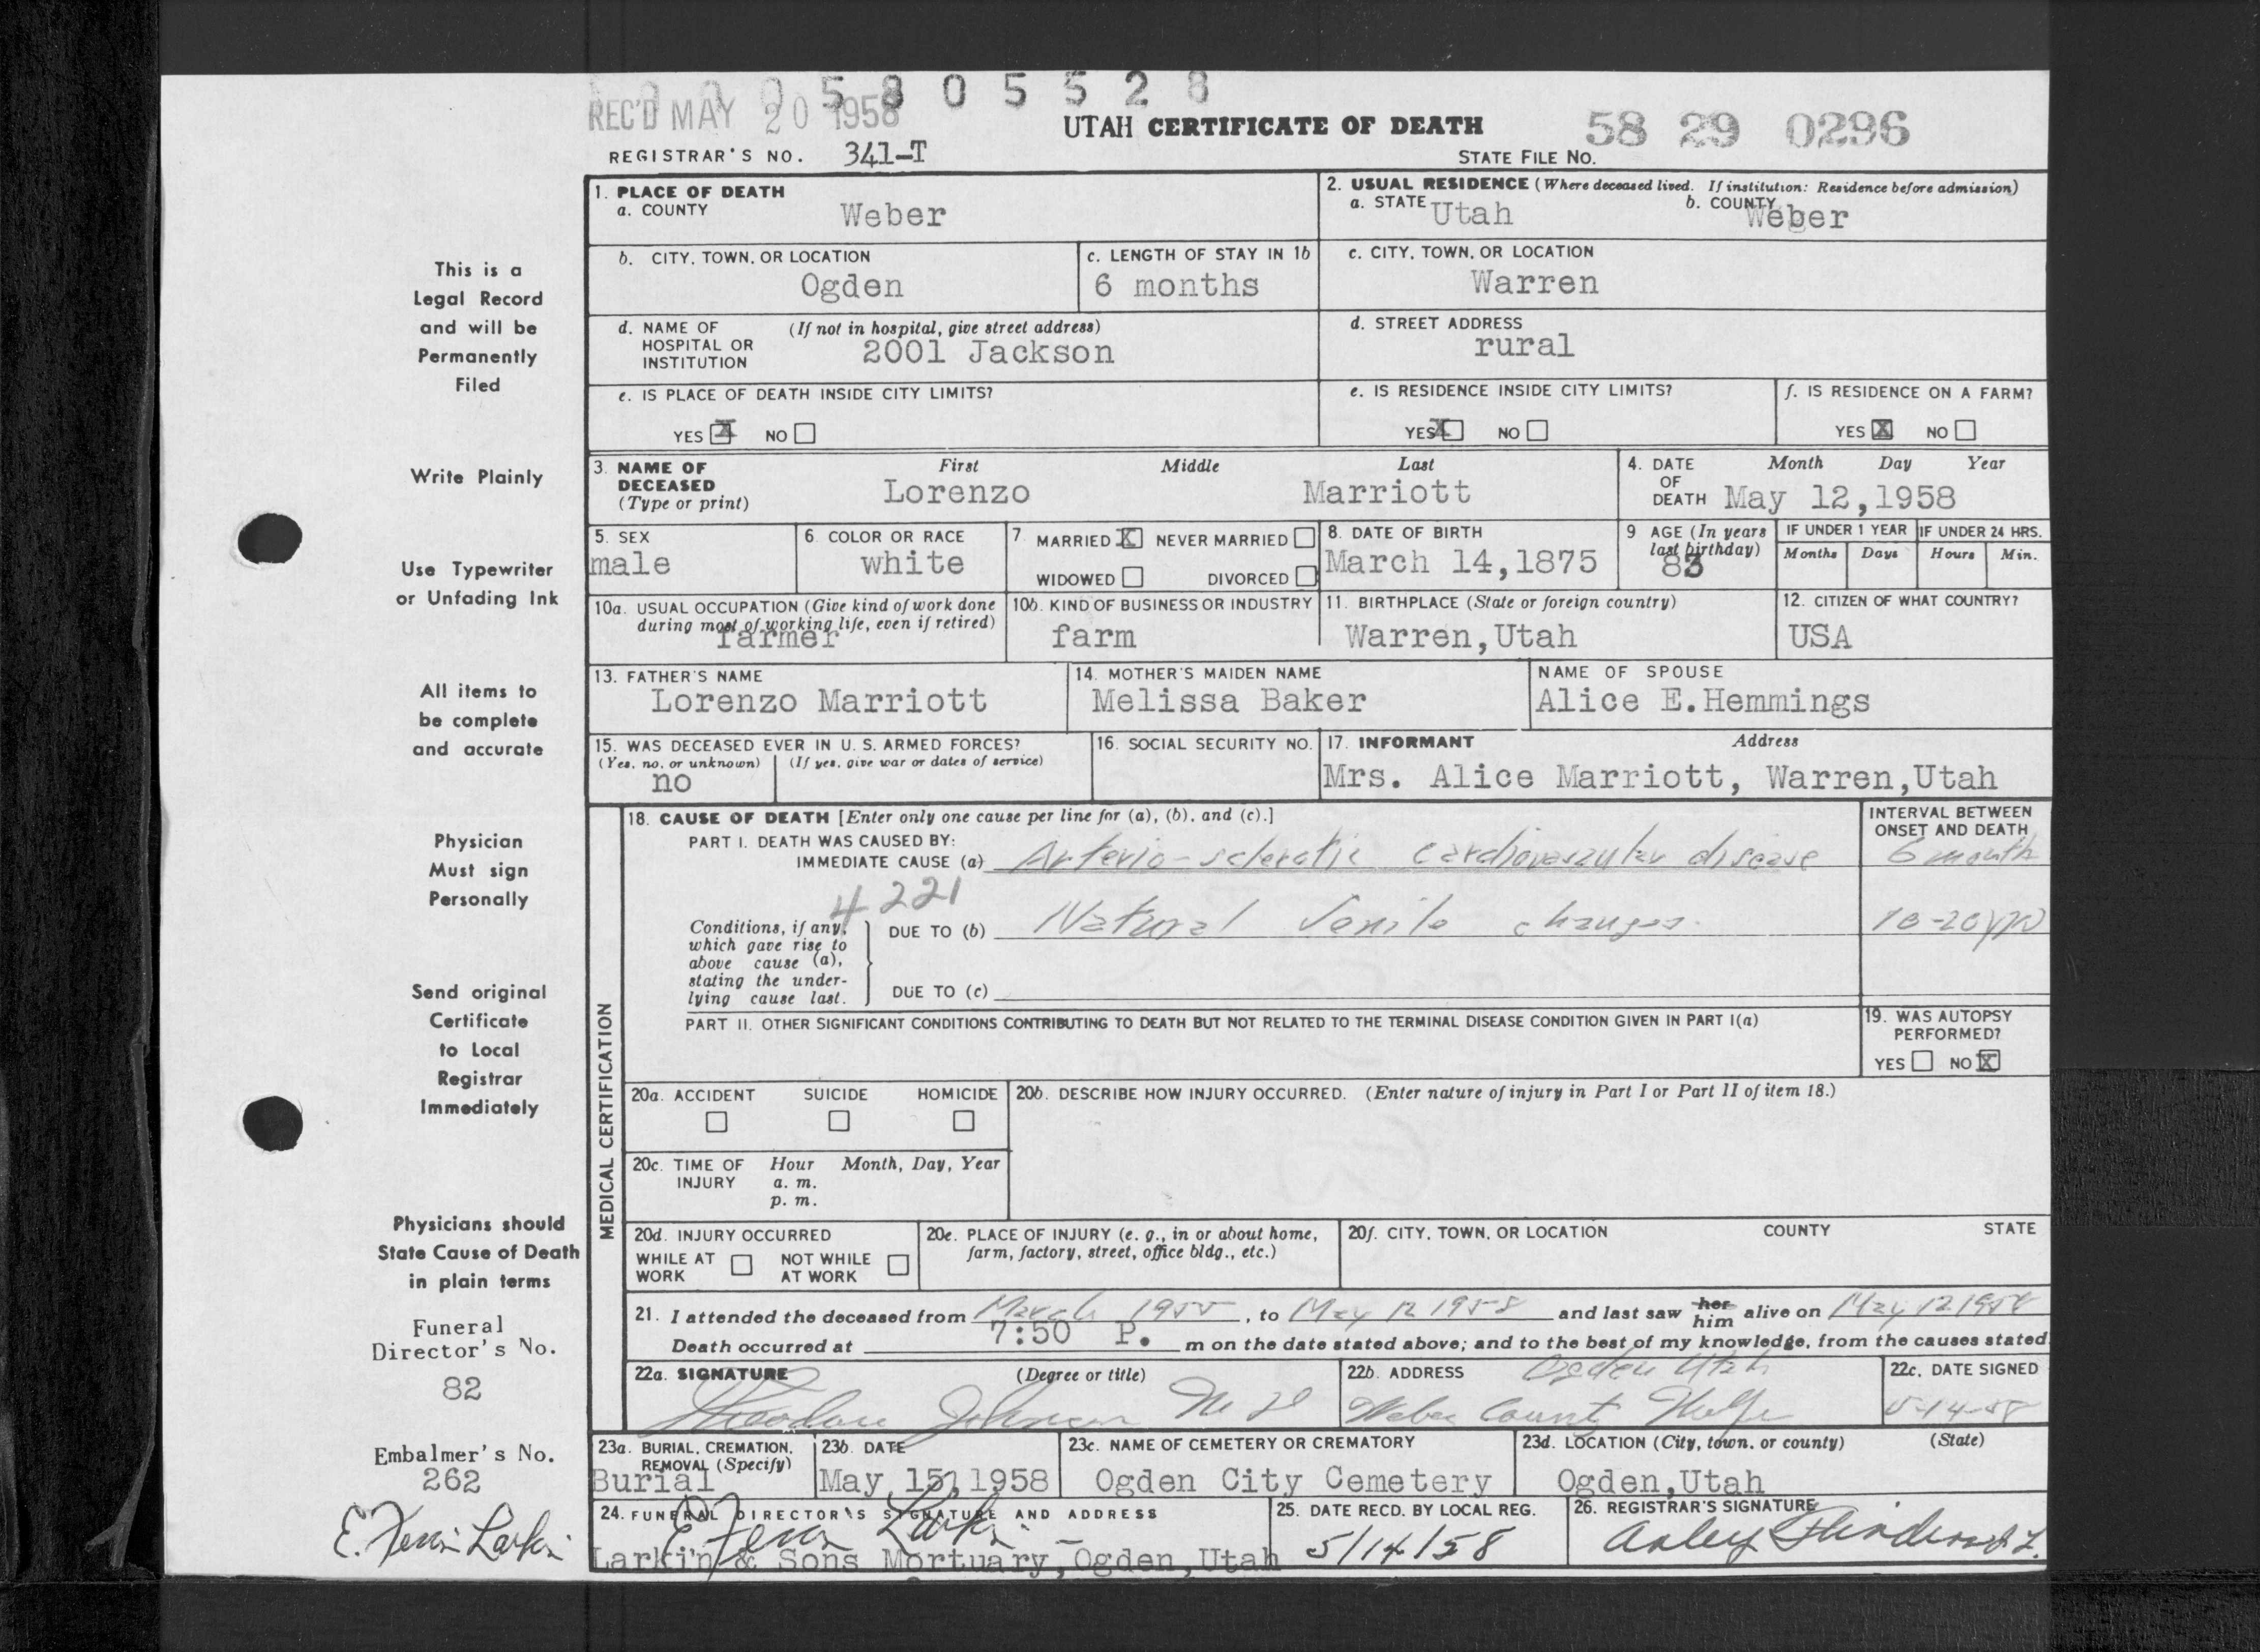 5 8 0 5 5 2 8
REC'D MAY 20 1958
UTAH CERTIFICATE OF DEATH
58 29 0296
REGISTRAR'S NO. 341-T
STATE FILE NO.
1. PLACE OF DEATH
a. COUNTY Weber
2. USUAL RESIDENCE (Where deceased lived. If institution: Residence before admission)
a. STATE Utah b. COUNTY Weber
b. CITY, TOWN, OR LOCATION Ogden
c. LENGTH OF STAY IN 1b 6 months
c. CITY, TOWN, OR LOCATION Warren
d. NAME OF HOSPITAL OR INSTITUTION (If not in hospital, give street address) 2001 Jackson
d. STREET ADDRESS rural
e. IS PLACE OF DEATH INSIDE CITY LIMITS?
YES X NO
e. IS RESIDENCE INSIDE CITY LIMITS?
YES X NO
f. IS RESIDENCE ON A FARM?
YES X NO
3. NAME OF DECEASED (Type or print)
First Middle Last
Lorenzo Marriott
4. DATE OF DEATH Month Day Year
May 12,1958
5. SEX male
6. COLOR OR RACE white
7. MARRIED X NEVER MARRIED
WIDOWED DIVORCED
8. DATE OF BIRTH March 14,1875
9 AGE (In years last birthday) 83
IF UNDER 1 YEAR Months Days
IF UNDER 24 HRS. Hours Min.
10a. USUAL OCCUPATION (Give kind of work done during most of working life, even if retired) farmer
10b. KIND OF BUSINESS OR INDUSTRY farm
11. BIRTHPLACE (State or foreign country) Warren,Utah
12. CITIZEN OF WHAT COUNTRY? USA
13. FATHER'S NAME Lorenzo Marriott
14. MOTHER'S MAIDEN NAME Melissa Baker
NAME OF SPOUSE Alice E.Hemmings
15. WAS DECEASED EVER IN U. S. ARMED FORCES?
(Yes, no, or unknown) (If yes, give war or dates of service)
no
16. SOCIAL SECURITY NO.
17. INFORMANT Address
Mrs. Alice Marriott, Warren,Utah
MEDICAL CERTIFICATION
18. CAUSE OF DEATH [Enter only one cause per line for (a), (b), and (c).]
INTERVAL BETWEEN ONSET AND DEATH
PART I. DEATH WAS CAUSED BY:
IMMEDIATE CAUSE (a) Arterio-sclerotic cardiovascular disease 6 month
4221
Conditions, if any, which gave rise to above cause (a), stating the underlying cause last.
DUE TO (b) Natural Senile changes. 10-20 yrs
DUE TO (c)
PART II. OTHER SIGNIFICANT CONDITIONS CONTRIBUTING TO DEATH BUT NOT RELATED TO THE TERMINAL DISEASE CONDITION GIVEN IN PART I(a)
19. WAS AUTOPSY PERFORMED?
YES NO X
20a. ACCIDENT SUICIDE HOMICIDE
20b. DESCRIBE HOW INJURY OCCURRED. (Enter nature of injury in Part I or Part II of item 18.)
20c. TIME OF INJURY Hour Month, Day, Year
a. m.
p. m.
20d. INJURY OCCURRED
WHILE AT WORK NOT WHILE AT WORK
20e. PLACE OF INJURY (e. g., in or about home, farm, factory, street, office bldg., etc.)
20f. CITY, TOWN, OR LOCATION COUNTY STATE
21. I attended the deceased from March 1955, to May 12 1958 and last saw her him alive on May 12 1958
Death occurred at 7:50 P. m on the date stated above; and to the best of my knowledge, from the causes stated
22a. SIGNATURE (Degree or title)
Theodore Johnson M D
22b. ADDRESS Ogden Utah
Weber County
22c. DATE SIGNED 5-14-58
23a. BURIAL, CREMATION, REMOVAL (Specify) Burial
23b. DATE May 15, 1958
23c. NAME OF CEMETERY OR CREMATORY Ogden City Cemetery
23d. LOCATION (City, town, or county) (State) Ogden,Utah
24. FUNERAL DIRECTOR'S SIGNATURE AND ADDRESS
E Fern Larkin
Larkin & Sons Mortuary,Ogden,Utah
25. DATE RECD. BY LOCAL REG. 5/14/58
26. REGISTRAR'S SIGNATURE
This is a
Legal Record
and will be
Permanently
Filed
Write Plainly
Use Typewriter
or Unfading Ink
All items to
be complete
and accurate
Physician
Must sign
Personally
Send original
Certificate
to Local
Registrar
Immediately
Physicians should
State Cause of Death
in plain terms
Funeral
Director's No.
82
Embalmer's No.
262
E. Fern Larkin